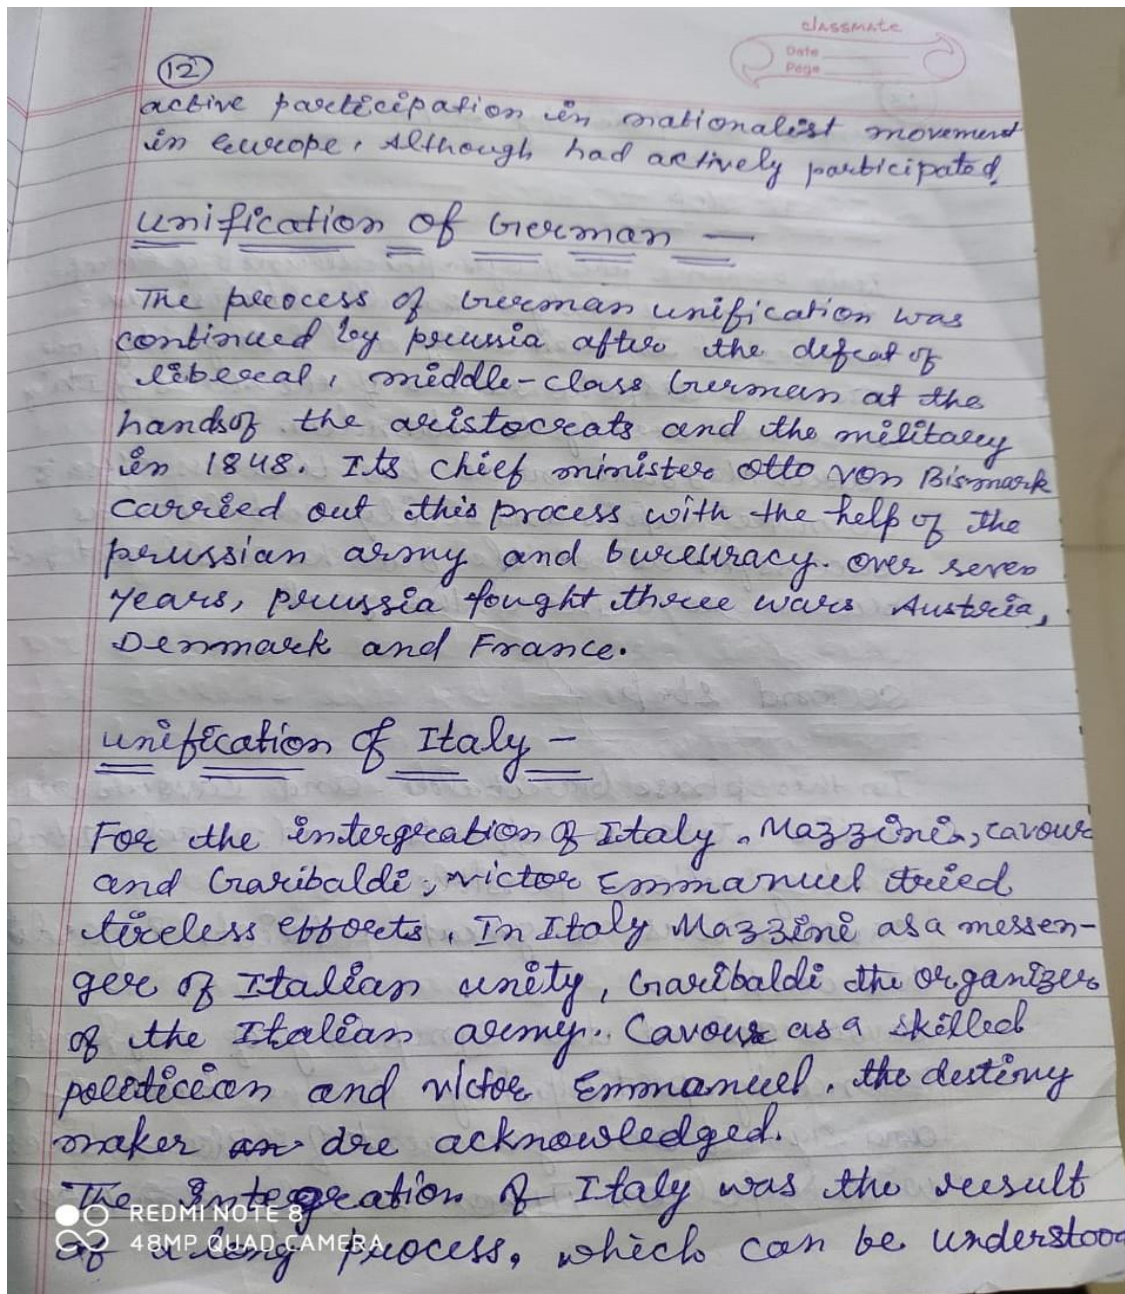 classmate
Date
Page
12
active participation in nationalist movement
in europe. Although had actively participated.
unification of German —
The process of German unification was
continued by prussia after the defeat of
liberal, middle-class German at the
hands of the aristocrats and the military
in 1848. Its chief minister otto von Bismark
carried out this process with the help of the
prussian army and bureuracy. over seven
years, prussia fought three wars Austria,
Denmark and France.
unification of Italy —
For the intergration of Italy. Mazzini, cavour
and Garibaldi, victor Emmanuel tried
tireless efforts. In Italy Mazzini as a messen-
ger of Italian unity, Garibaldi the organizer
of the Italian army. Cavour as a skilled
politician and victor Emmanuel. the destiny
maker are acknowledged.
The intergration of Italy was the result
of a long process, which can be understood
REDMI NOTE 8
48MP QUAD CAMERA